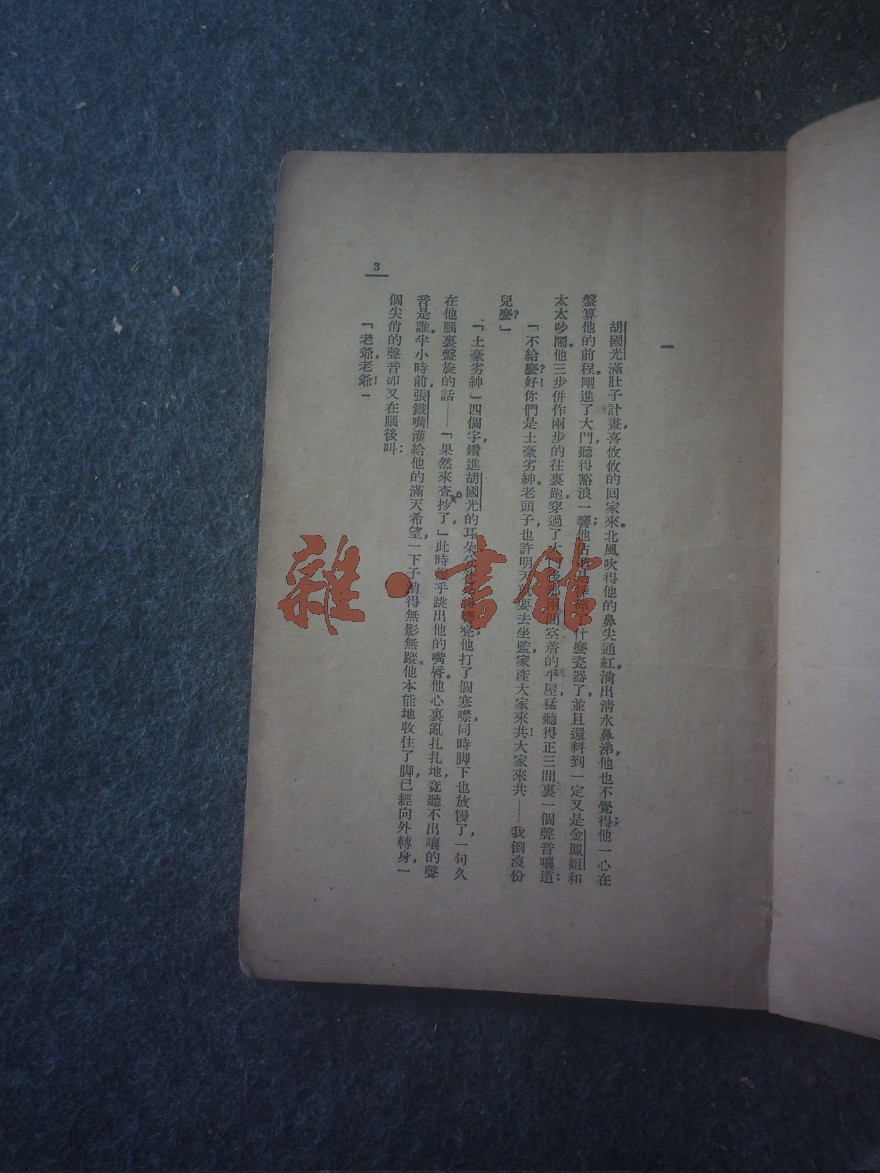 一
胡國光滿肚子計畫，喜孜孜的回家來。北風吹得他的鼻尖通紅，淌出清水鼻涕，他也不覺得；他一心在
盤算他的前程。剛進了大門，聽得豁浪一響，他什麼瓷器了，並且還料到一定又是金鳳姐和
太太吵鬧。他三步併作兩步的往裏跑，穿過了大門空着的平屋，猛聽得正三間裏一個聲音嚷道：
「不給麼？好！你們是土豪劣紳。老頭子也許明天要去坐監，家產大家來共！大家來共——我倒沒份
兒麼？」
「土豪劣紳」四個字，鑽進胡國光的耳朵他打了個寒噤，同時脚下也放慢了，一句久
在他腦裏盤旋的話——「果然來查抄了，」此時乎跳出他的嘴唇。他心裏亂扎扎地，竟聽不出嚷的聲
音是誰。半小時前，張鐵嘴灌給他的滿天希望，一下子消得無影無蹤。他本能地收住了脚，已經向外轉身，一
個尖俏的聲音卻又在腦後叫：
「老爺，老爺！」
3
雜·書館